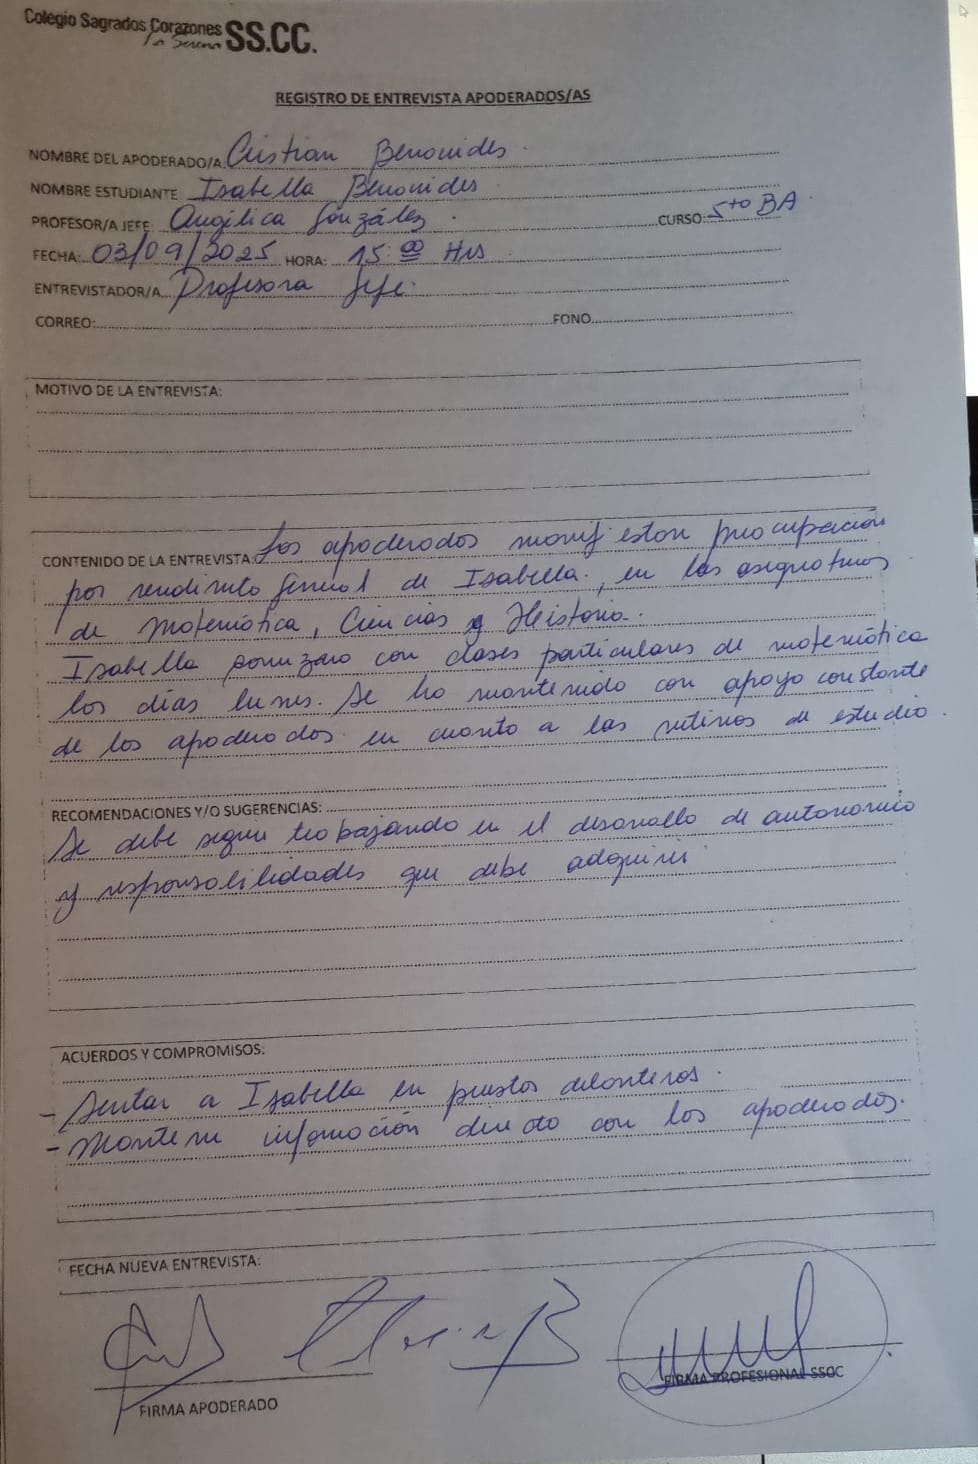 Colegio Sagrados Corazones SS.CC.
La Serena
REGISTRO DE ENTREVISTA APODERADOS/AS
NOMBRE DEL APODERADO/A: Cristian Benavides.
NOMBRE ESTUDIANTE Isabella Benavides
PROFESOR/A JEFE: Angélica González. CURSO: 5to BA
FECHA: 03/09/2025 HORA: 15:00 Hrs
ENTREVISTADOR/A Profesora Jefe.
CORREO: FONO
MOTIVO DE LA ENTREVISTA:
CONTENIDO DE LA ENTREVISTA: Los apoderados manifiestan preocupación
por rendimiento general de Isabella, en las asignaturas
de Matemática, Ciencias y Historia.
Isabella comenzará con clases particulares de matemática
los días lunes. Se ha mantenido con apoyo constante
de los apoderados en cuanto a las rutinas de estudio.
RECOMENDACIONES Y/O SUGERENCIAS:
Se debe seguir trabajando en el desarrollo de autonomía
y responsabilidades que debe adquirir
ACUERDOS Y COMPROMISOS:
- Sentar a Isabella en puestos delanteros.
- Mantener información directa con los apoderados.
FECHA NUEVA ENTREVISTA:
FIRMA APODERADO
FIRMA PROFESIONAL SSCC